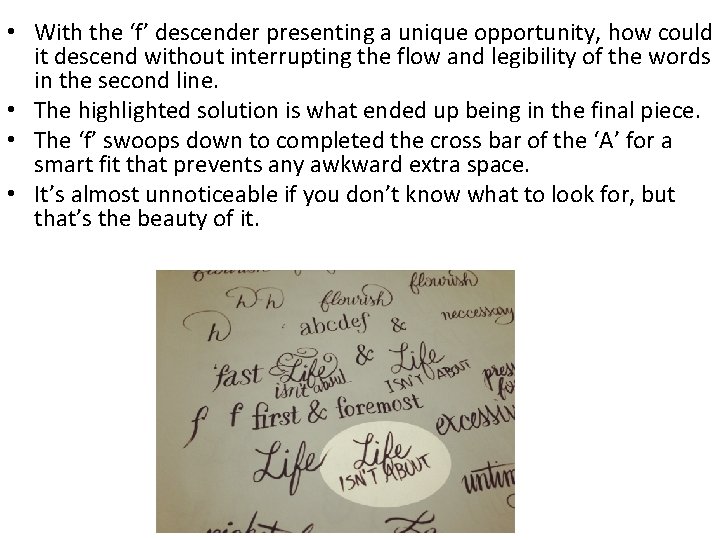 • With the ‘f’ descender presenting a unique opportunity, how could
it descend without interrupting the flow and legibility of the words
in the second line.
• The highlighted solution is what ended up being in the final piece.
• The ‘f’ swoops down to completed the cross bar of the ‘A’ for a
smart fit that prevents any awkward extra space.
• It’s almost unnoticeable if you don’t know what to look for, but
that’s the beauty of it.
flourish
h h flourish
h abcdef & neccessary
fast Life & Life
isn't about ISN'T ABOUT
f f first & foremost
Life Life
ISN'T ABOUT